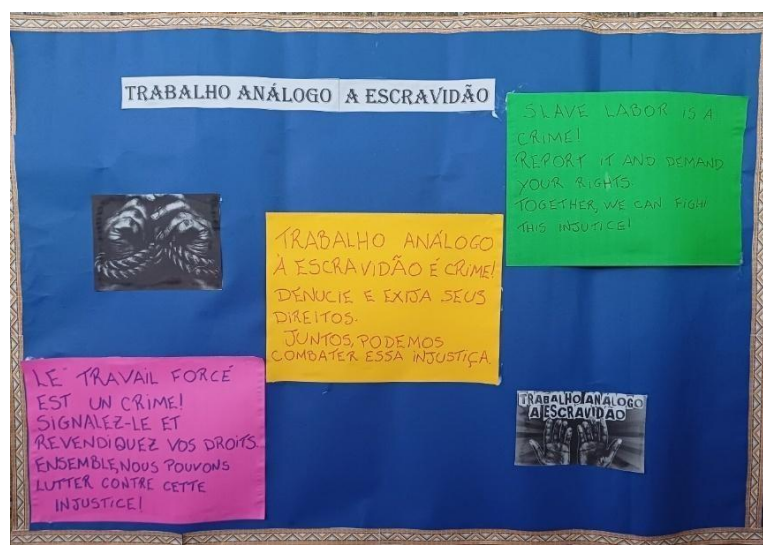 TRABALHO ANÁLOGO A ESCRAVIDÃO
SLAVE LABOR IS A
CRIME!
REPORT IT AND DEMAND
YOUR RIGHTS.
TOGETHER, WE CAN FIGHT
THIS INJUTICE!
TRABALHO ANÁLOGO
À ESCRAVIDÃO É CRIME!
DENUCIE E EXIJA SEUS
DIREITOS.
JUNTOS, PODEMOS
COMBATER ESSA INJUSTIÇA.
LE TRAVAIL FORCÉ
EST UN CRIME!
SIGNALEZ-LE ET
REVENDIQUEZ VOS DROITS.
ENSEMBLE, NOUS POUVONS
LUTTER CONTRE CETTE
INJUSTICE!
TRABALHO ANALOGO
A ESCRAVIDÃO